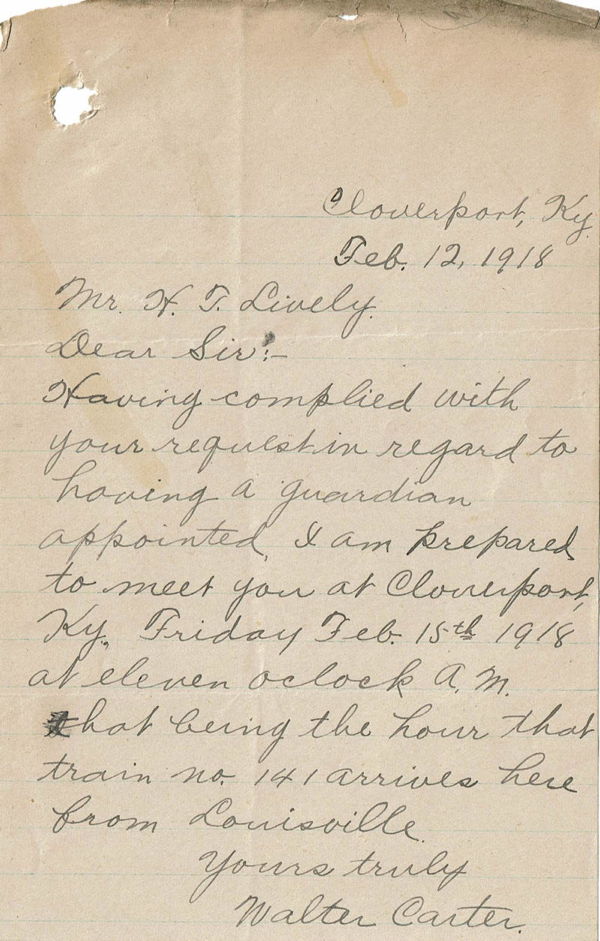 Cloverport, Ky.
Feb. 12, 1918
Mr. H. T. Lively.
Dear Sir:-
Having complied with
your request in regard to
having a guardian
appointed, I am prepared
to meet you at Cloverport,
Ky., Friday Feb. 15th 1918
at eleven oclock A.M.
that being the hour that
train no. 141 arrives here
from Louisville.
Yours truly
Walter Carter.